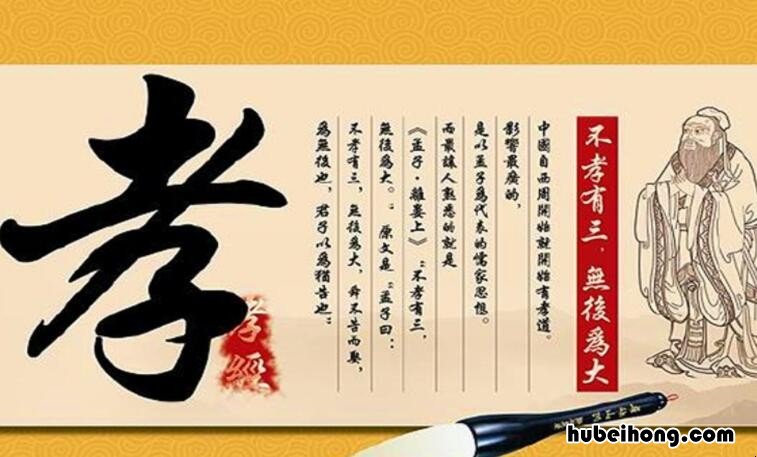 不孝有三，無後爲大
中國自西周開始就開始有孝道。
影響最廣的，
是以孟子爲代表的儒家思想。
而最讓人熟悉的就是
《孟子·離婁上》“不孝有三，
無後爲大。”原文是“孟子曰：
不孝有三，無後爲大，舜不告而娶，
爲無後也，君子以爲猶告也”
孝
孝經
hubeihong.com